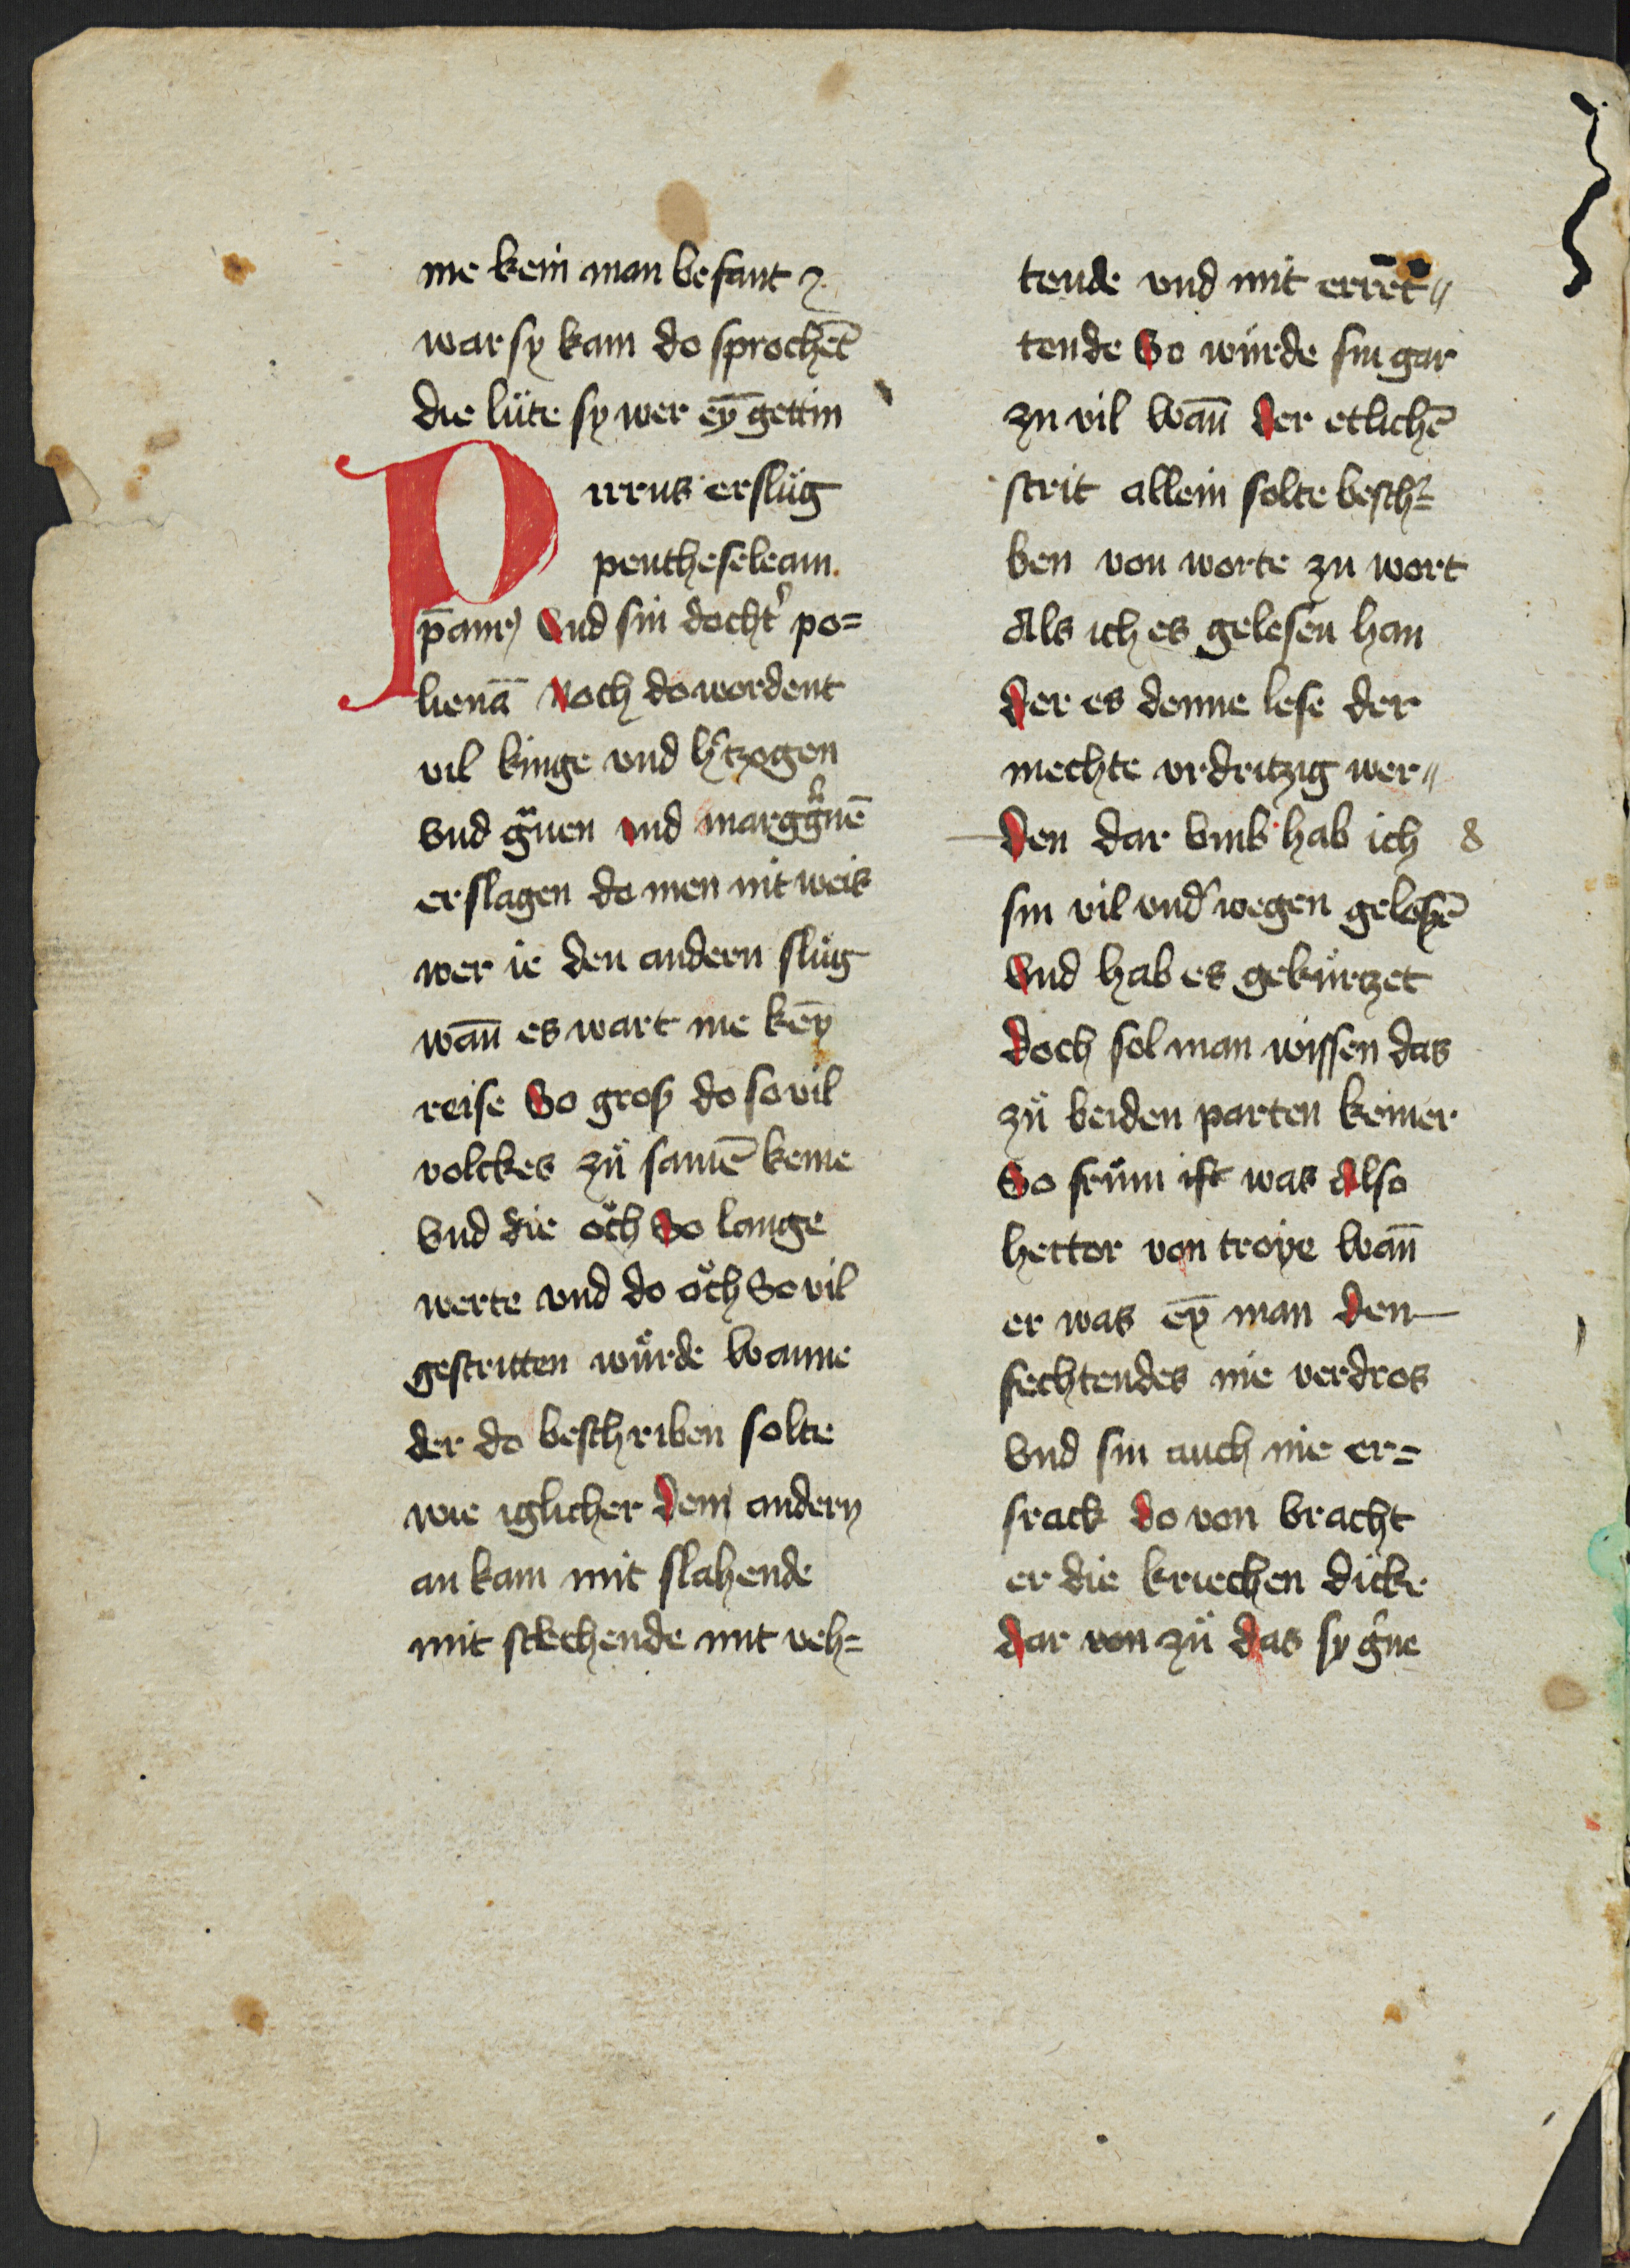 me kein man besant
war sy kam do sprochēt
die lüte sy wer eȳ gettin
Pirrus erslüg
pentheseleam
Vnd sin docht' po=
lienā Noch do wordent
vil kinge vnd h'tzogen
Vnd g̃uen vnd margg̃uē
erslagen do men nit weis
wer ie den andern slüg
wān es wart nie kēy
reise So gros do so vil
volckes zů samē keme
Vnd die o̊ch So lange
werte vnd do o̊ch So vil
gestritten wůrde Wanne
der do beschriben solte
wie iglicher dem andern
an kam mit slahende
mit stechende mit veh=
tende vnd mit errēt〃
tende So würde sin gar
zu vil Wān der etlichē
strit allein solte besch²=
ben von worte zu wort
Als ich es gelesen han
der es denne lese der
mechte vrdritzig wer〃
den dar vmb hab ich
sin vil vnd' wegen gelossē
Vnd hab es gekürtzet
doch sol man wissen das
zů beiden parten keiner
So frům ist was Also
hector von troye Wān
er was eȳ man den
fechtendes nie verdros
Vnd sin auch nie er=
srack do von bracht
er die kriechen dicke
dar von zů das sy g'ne